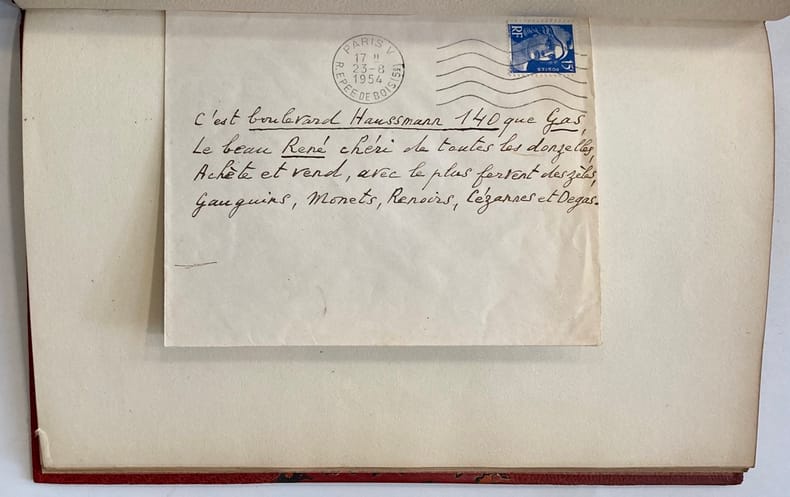 PARIS V
17 H
23-8
1954
R. EPEE DE BOIS (5e)
RF
15F
POSTES
C'est boulevard Haussmann 140 que Gas,
Le beau René chéri de toutes les donzelles,
Achète et vend, avec le plus fervent des zèles,
Gauguins, Monets, Renoirs, Cézannes et Degas.